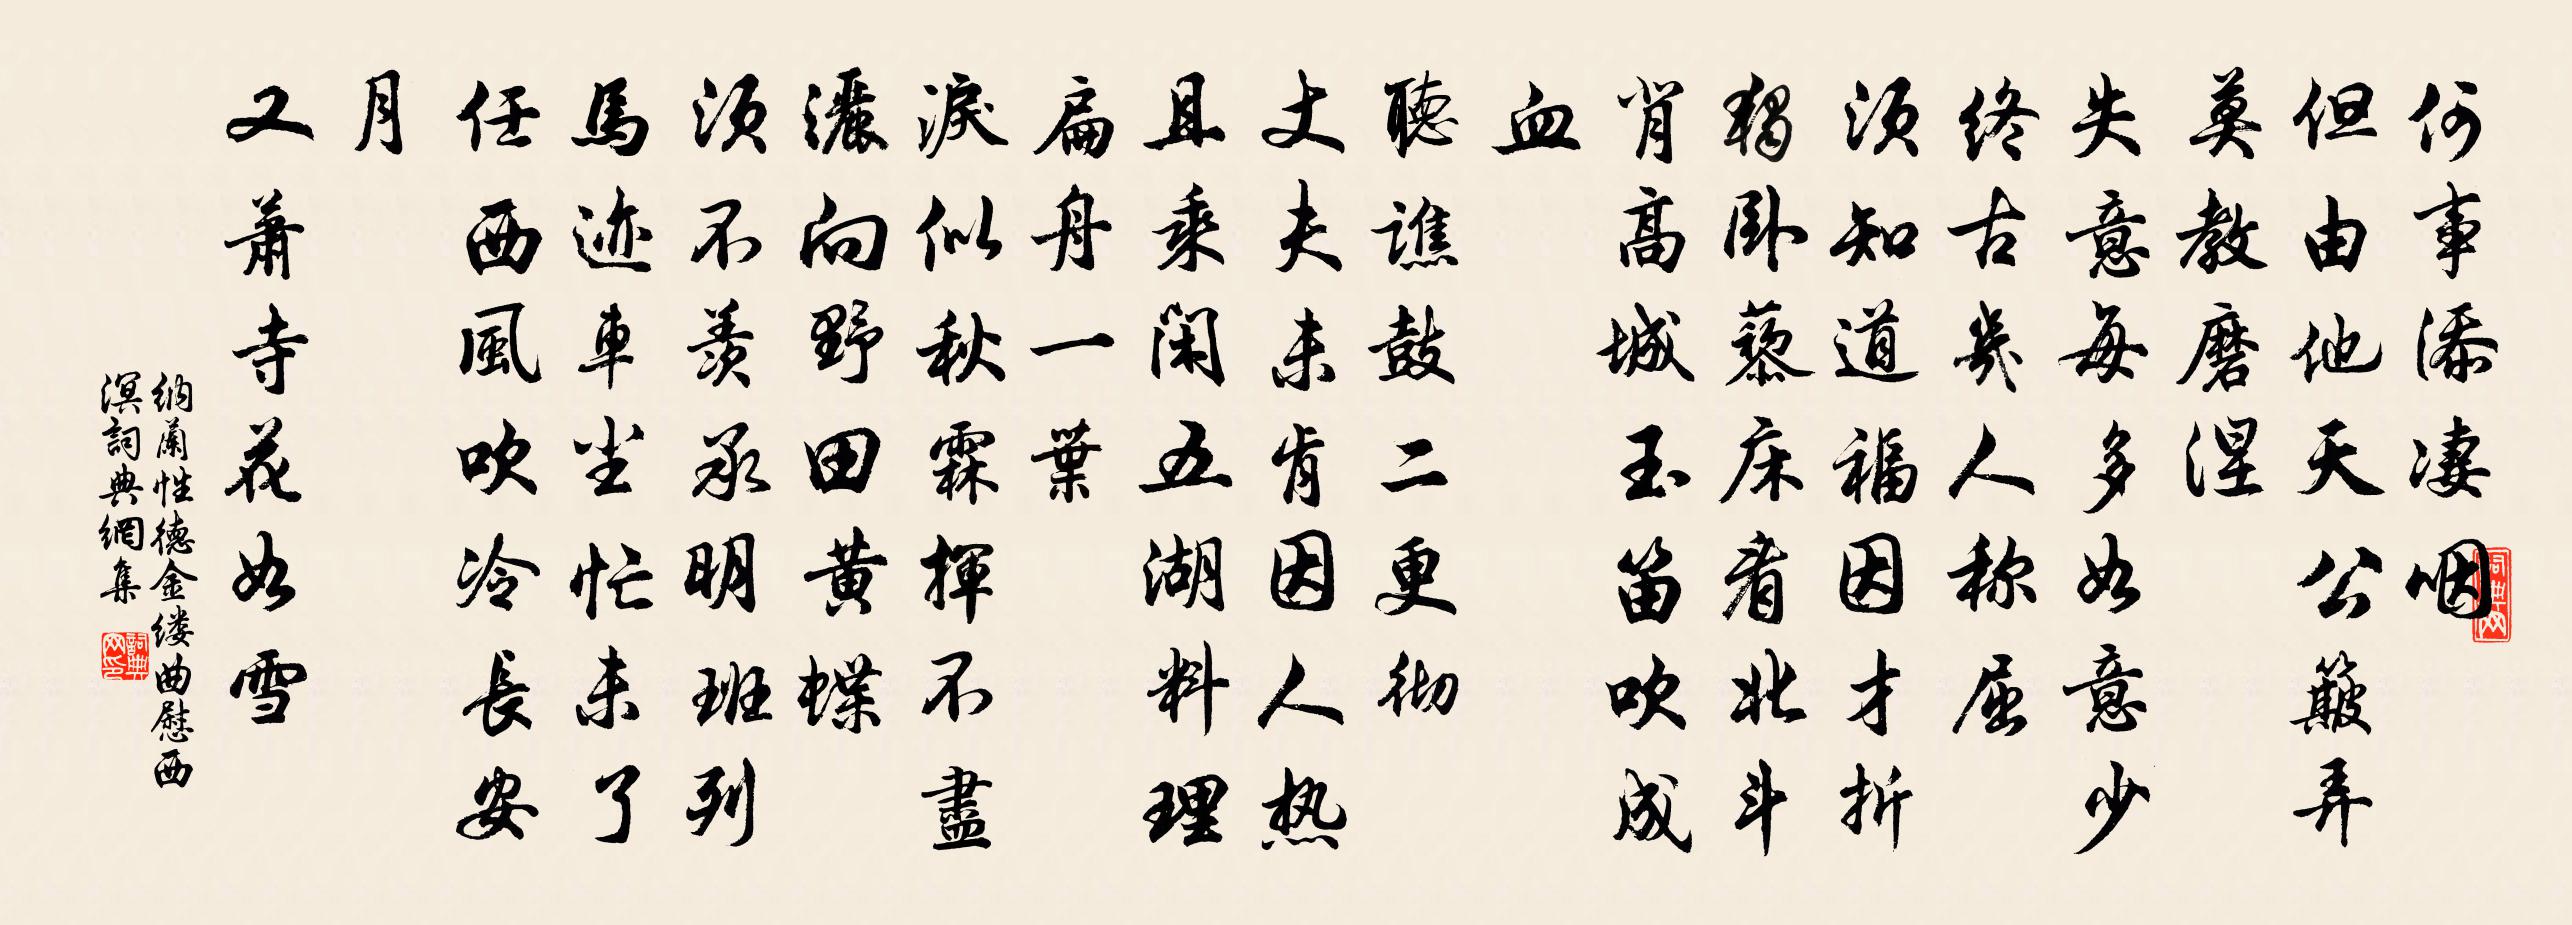 何事添凄咽
但由他天公簸弄
莫教磨涅
失意每多如意少
终古幾人称屈
須知道福因才折
獨卧藜床看北斗
背高城玉笛吹成
血
聽譙鼓二更彻
丈夫未肯因人热
且乘閑五湖料理
扁舟一葉
淚似秋霖揮不盡
灑向野田黄蝶
須不羡承明班列
馬迹車尘忙未了
任西風吹冷長安
月
又蕭寺花如雪
纳蘭性德金缕曲慰西
溟詞典網集
詞典网
詞典网印